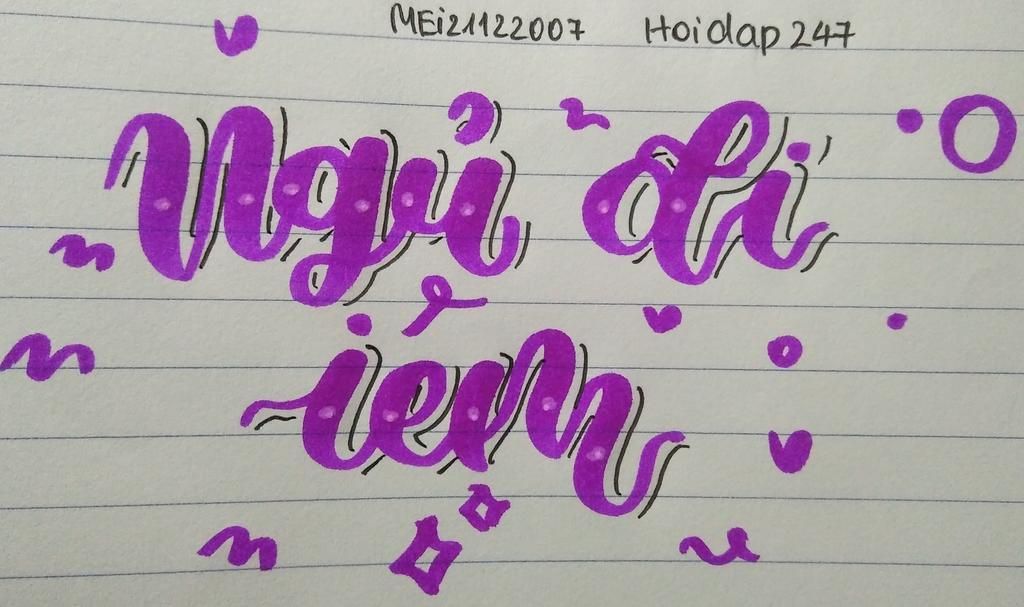 MEi21122007 Hoidap 247
Ngủ đi
iem